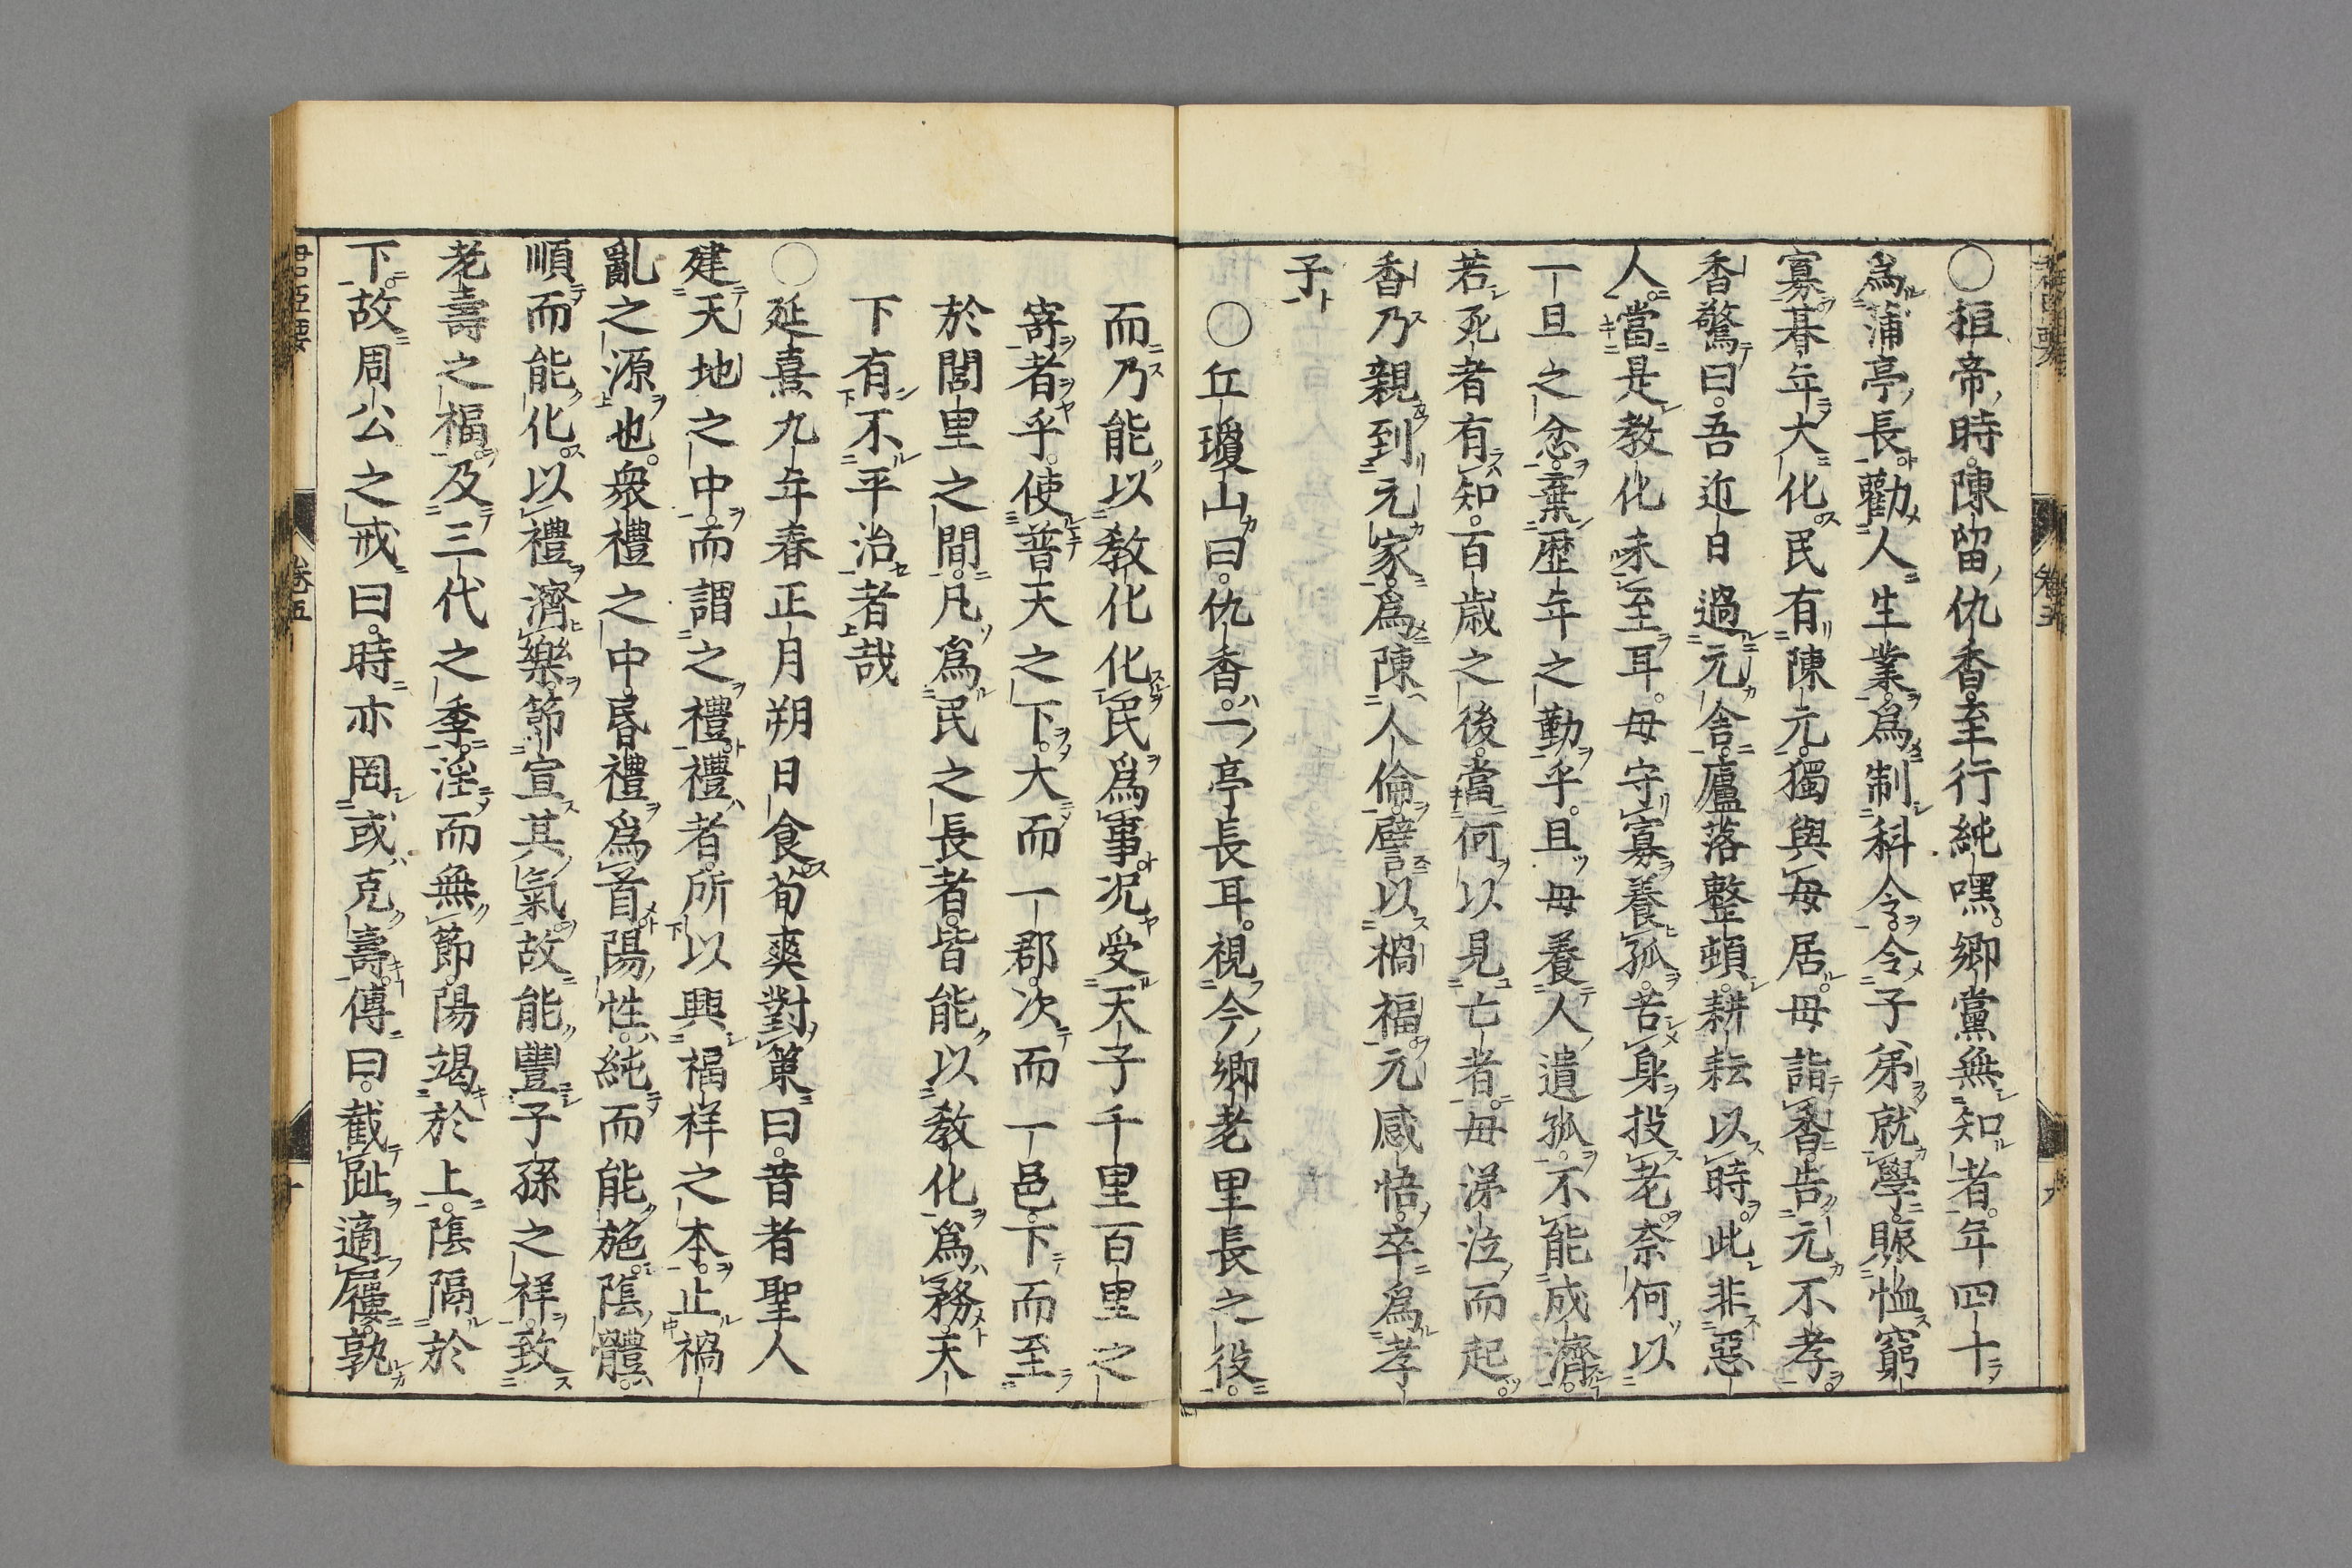 〇桓帝時。陳留仇香。至行純嘿。鄉黨無知者。年四十
爲蒲亭長。勸人生業。爲制科令。令子弟就學。賑恤窮
寡。朞年大化。民有陳元。獨與母居。母詣香。告元不孝。
香驚曰。吾近日過元舍。廬落整頓。耕耘以時。此非惡
人。當是教化未至耳。母守寡養孤。苦身投老。奈何以
一旦之忿。棄歷年之勤乎。且母養人遺孤。不能成濟。
若死者有知。百歲之後。當何以見亡者。母涕泣而起。
香乃親到元家。爲陳人倫。譬以禍福。元感悟。卒爲孝
子
〇丘瓊山曰。仇香。一亭長耳。視今鄉老里長之役。
而乃能以教化化民爲事。况受天子千里百里之
寄者乎。使普天之下。大而一郡。次而一邑。下而至
於閭里之間。凡爲民之長者。皆能以教化爲務。天
下有不平治者哉
〇延熹九年春正月朔。日食。荀爽對策曰。昔者聖人
建天地之中。而謂之禮。禮者。所以興福祥之本。止禍
亂之源也。衆禮之中。昏禮爲首。陽性純而能施。陰體
順而能化。以禮濟樂。節宣其氣。故能豐子孫之祥。致
老壽之福。及三代之季。淫而無節。陽竭於上。陰隔於
下。故周公之戒曰。時亦罔或克壽。傳曰。截趾適屨。孰
君臣要
卷五
十
卷五
九